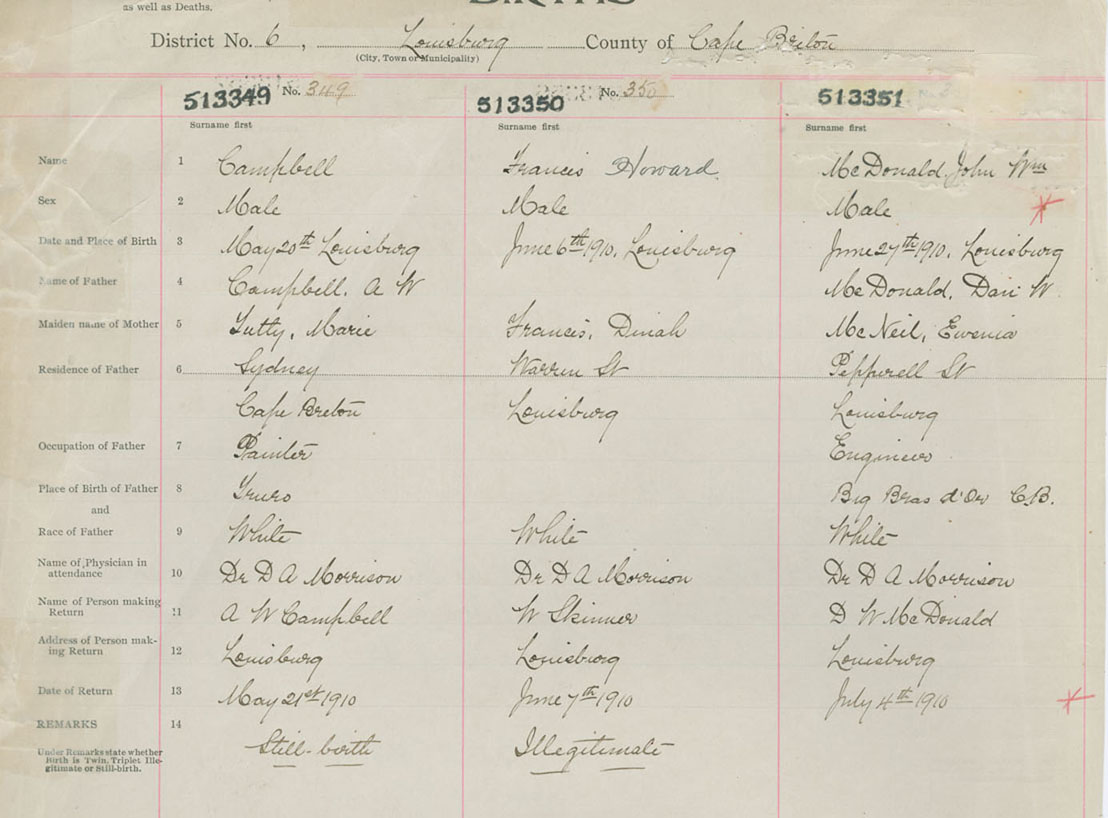 as well as Deaths.
BIRTHS
District No. 6, Louisburg County of Cape Breton
(City, Town or Municipality)
513349 No. 349 513350 No. 350 513351
Surname first Surname first Surname first
Name 1 Campbell Francis Howard McDonald, John Wm
Sex 2 Male Male Male
Date and Place of Birth 3 May 20th Louisburg June 6th 1910, Louisburg June 27th 1910, Louisburg
Name of Father 4 Campbell, A W McDonald, Dan W
Maiden name of Mother 5 Tutty, Marie Francis, Dinah McNeil, Ewenia
Residence of Father 6 Sydney Warren St Pepperell St
Cape Breton Louisburg Louisburg
Occupation of Father 7 Painter Engineer
Place of Birth of Father 8 Truro Big Bras d'Or C.B.
and
Race of Father 9 White White White
Name of Physician in
attendance 10 Dr D A Morrison Dr D A Morrison Dr D A Morrison
Name of Person making
Return 11 A W Campbell W Skinner D W McDonald
Address of Person mak-
ing Return 12 Louisburg Louisburg Louisburg
Date of Return 13 May 21st 1910 June 7th 1910 July 4th 1910
REMARKS 14
Still-birth Illegitimate
Under Remarks state whether
Birth is Twin, Triplet Ille-
gitimate or Still-birth.